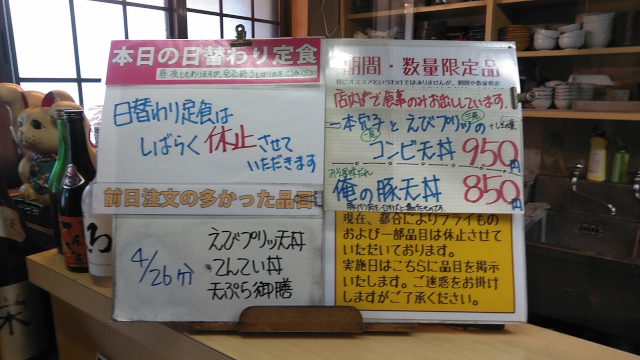 本日の日替わり定食
日替わり定食は
しばらく休止させて
いただきます
前日注文の多かった品
4/26分
えびプリッ天丼
てんてい丼
天ぷら御膳
期間・数量限定品
店内で食事のみお出ししています。
一本穴子とえびプリッの
コンビ天丼 950円
俺の豚天丼 850円
現在、都合によりフライもの
および一部品目は休止させて
いただいております。
実施日はこちらに品目を掲示
いたします。ご迷惑をお掛け
しますがご了承ください。